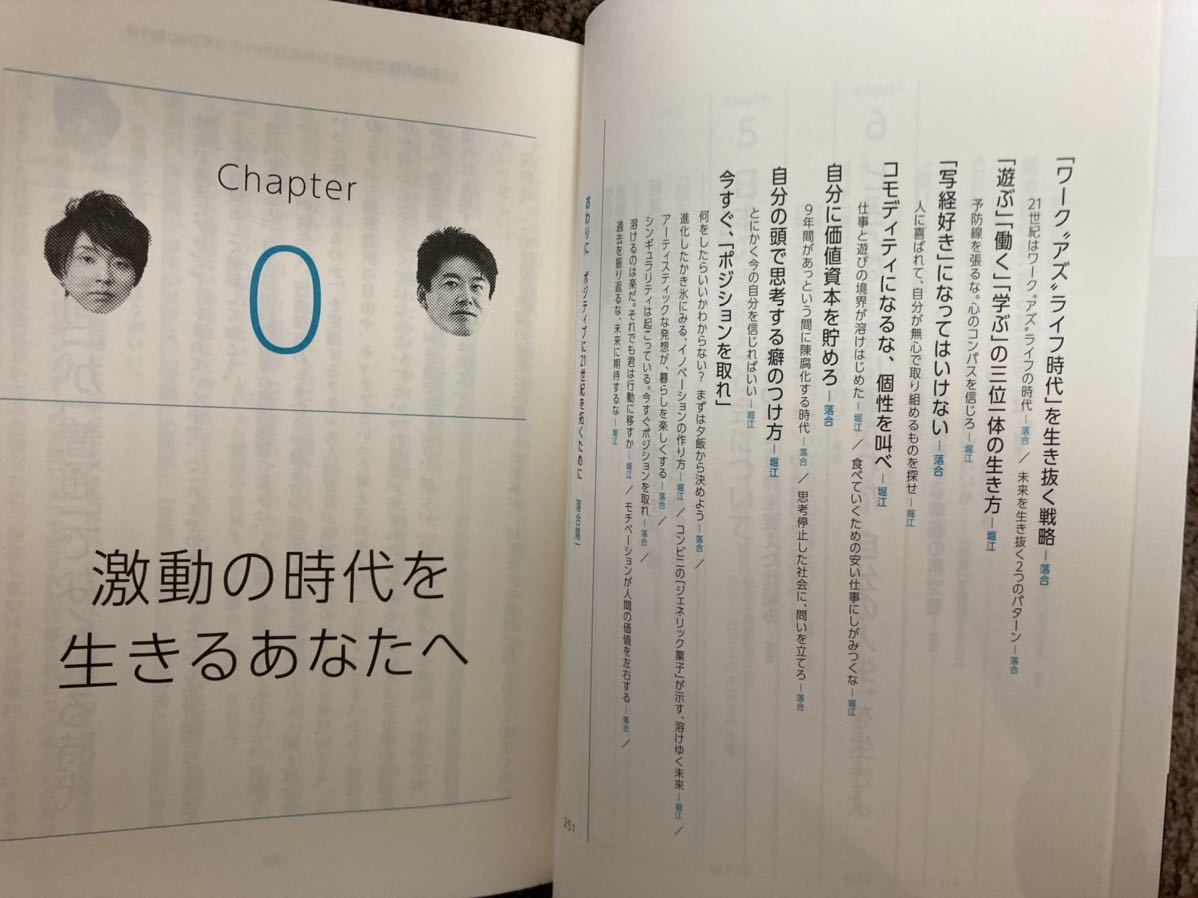 「ワーク〝アズ〟ライフ時代」を生き抜く戦略―落合
21世紀はワーク〝アズ〟ライフの時代―落合 / 未来を生き抜く2つのパターン―落合
「遊ぶ」「働く」「学ぶ」の三位一体の生き方―堀江
予防線を張るな。心のコンパスを信じろ―堀江
「写経好き」になってはいけない―落合
人に喜ばれて、自分が無心で取り組めるものを探せ―堀江
コモディティになるな、個性を叫べ―堀江
仕事と遊びの境界が溶けはじめた―堀江 / 食べていくための安い仕事にしがみつくな―堀江
自分に価値資本を貯めろ―落合
9年間があっという間に陳腐化する時代―落合 / 思考停止した社会に、問いを立てろ―落合
自分の頭で思考する癖のつけ方―堀江
とにかく今の自分を信じればいい―堀江
今すぐ、「ポジションを取れ」
何をしたらいいかわからない? まずは夕飯から決めよう―落合 /
進化したかき氷にみる、イノベーションの作り方―堀江 / コンビニの「ジェネリック菓子」が示す、溶けゆく未来―堀江 /
アーティスティックな発想が、暮らしを楽しくする―落合 /
シンギュラリティは起こっている。今すぐポジションを取れ―落合 /
溶けるのは楽だ。それでも君は行動に移すか―堀江 / モチベーションが人間の価値を左右する―落合 /
過去を振り返るな、未来に期待するな―堀江
おわりに ポジティブに21世紀を拓くために 落合陽一
251
Chapter
0
激動の時代を
生きるあなたへ